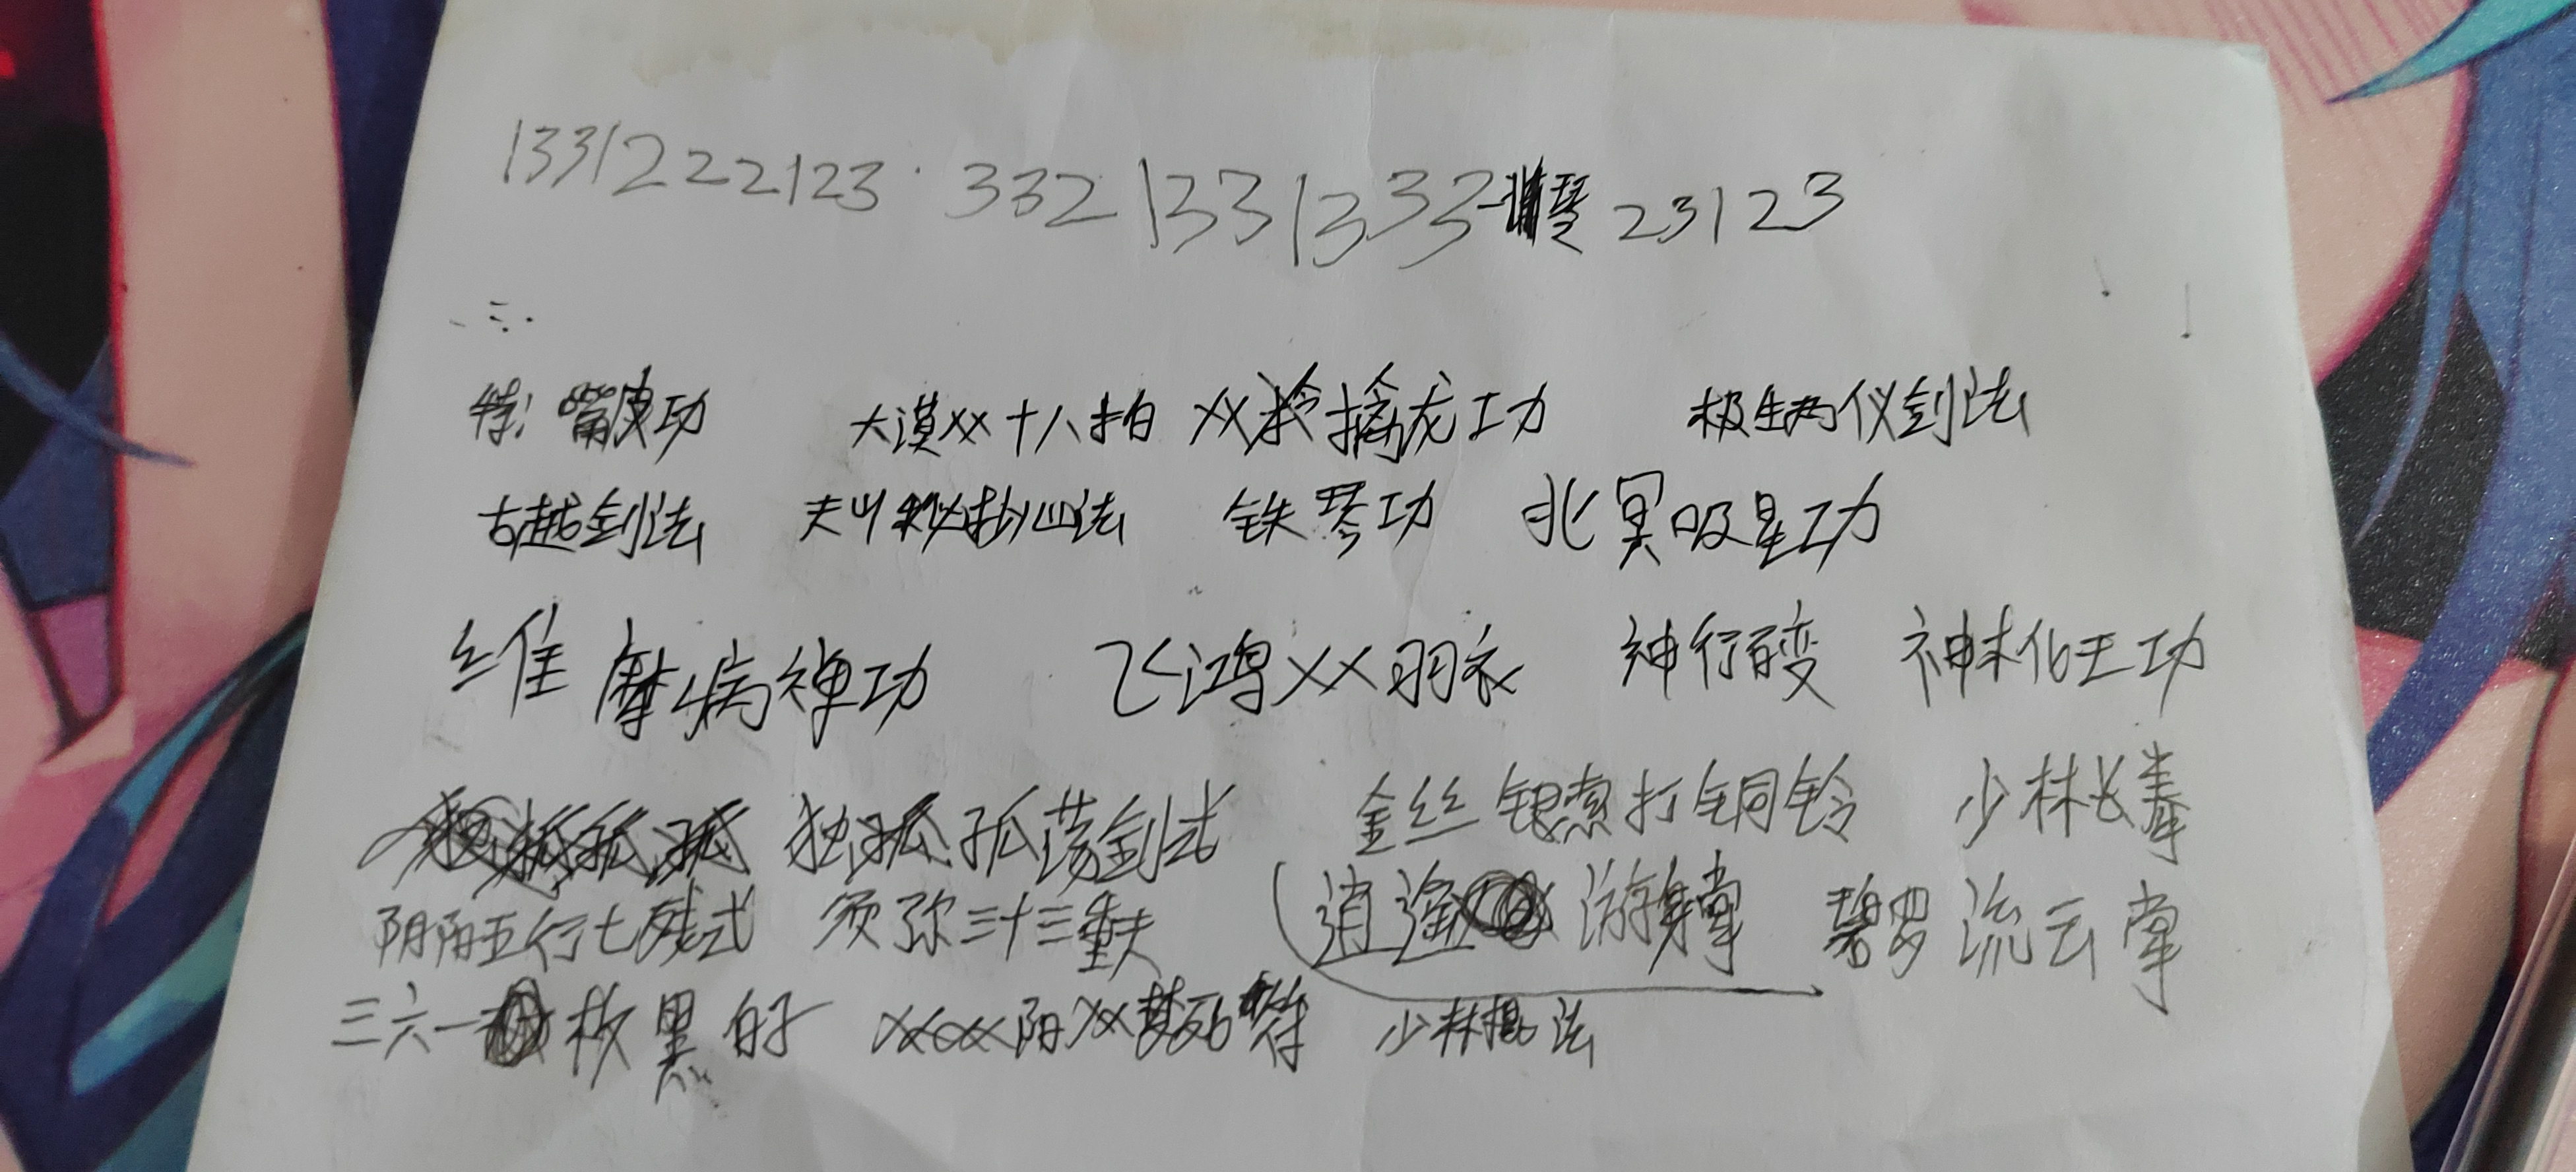 1331222123 · 332 1331333 琴 23123
特: 嘴皮功 大漠XX十八拍 XX 擒龙功 极生两仪剑法
古越剑法 心法 铁琴功 北冥吸星功
维摩病禅功 飞鸿XX羽衣 神行百变 神木化王功
独孤孤荡剑式 金丝银索打铜铃 少林长拳
阴阳五行七威式 须弥三十三重天 逍遥 游身掌 碧罗流云掌
三六一 板黑的子 XXXX阳XX梦死符 少林棍法